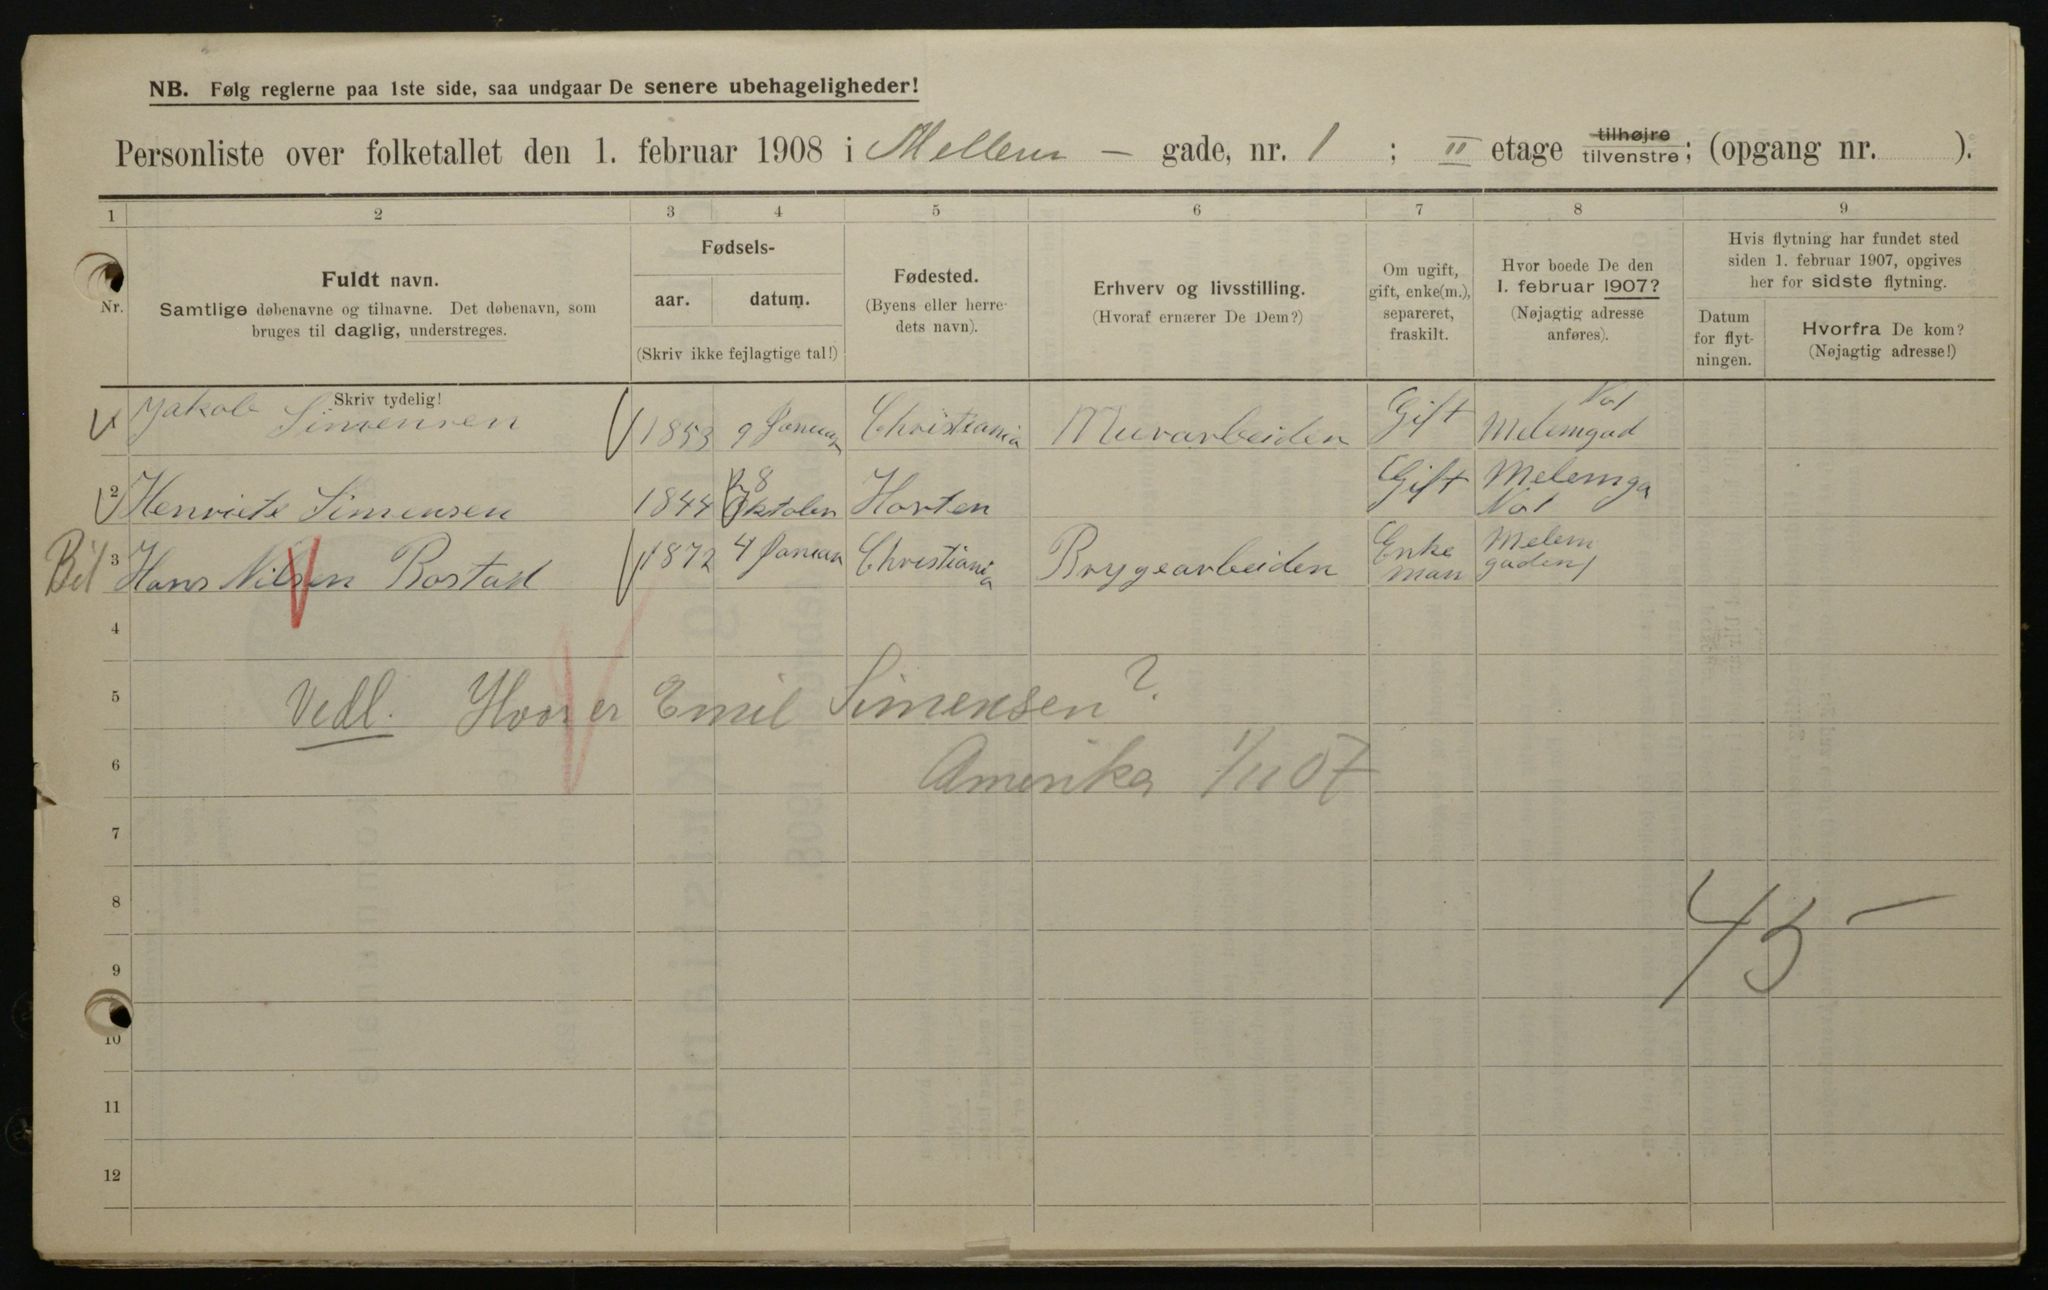 NB. Følg reglerne paa 1ste side, saa undgaar De senere ubehageligheder!
Personliste over folketallet den 1. februar 1908 i Mellem – gade, nr. 1 ; II etage tilhøjre tilvenstre; (opgang nr. ).
1 2 3 4 5 6 7 8 9
Nr.
Fuldt navn.
Samtlige døbenavne og tilnavne. Det døbenavn, som
bruges til daglig, understreges.
Fødsels-
aar. datum.
(Skriv ikke fejlagtige tal!)
Fødested.
(Byens eller herre-
dets navn).
Erhverv og livsstilling.
(Hvoraf ernærer De Dem?)
Om ugift,
gift, enke(m.),
separeret,
fraskilt.
Hvor boede De den
1. februar 1907?
(Nøjagtig adresse
anføres).
Hvis flytning har fundet sted
siden 1. februar 1907, opgives
her for sidste flytning.
Datum
for flyt-
ningen.
Hvorfra De kom?
(Nøjagtig adresse!)
Skriv tydelig!
Jakob Simensen 1853 9 Januar Christiania Murarbeiden Gift Melemgad No1
2 Henriete Simensen 1844 8 Oktober Horten Gift Melemga No1
Bil 3 Hans Nilsen Rostad 1872 4 Januar Christiania Brygearbeiden Enke man Melem gaden 1
4
5 Vedl. Hvor er Emil Simensen?
6 Amerika 1/11 07
7
8
45 –
9
10
11
12